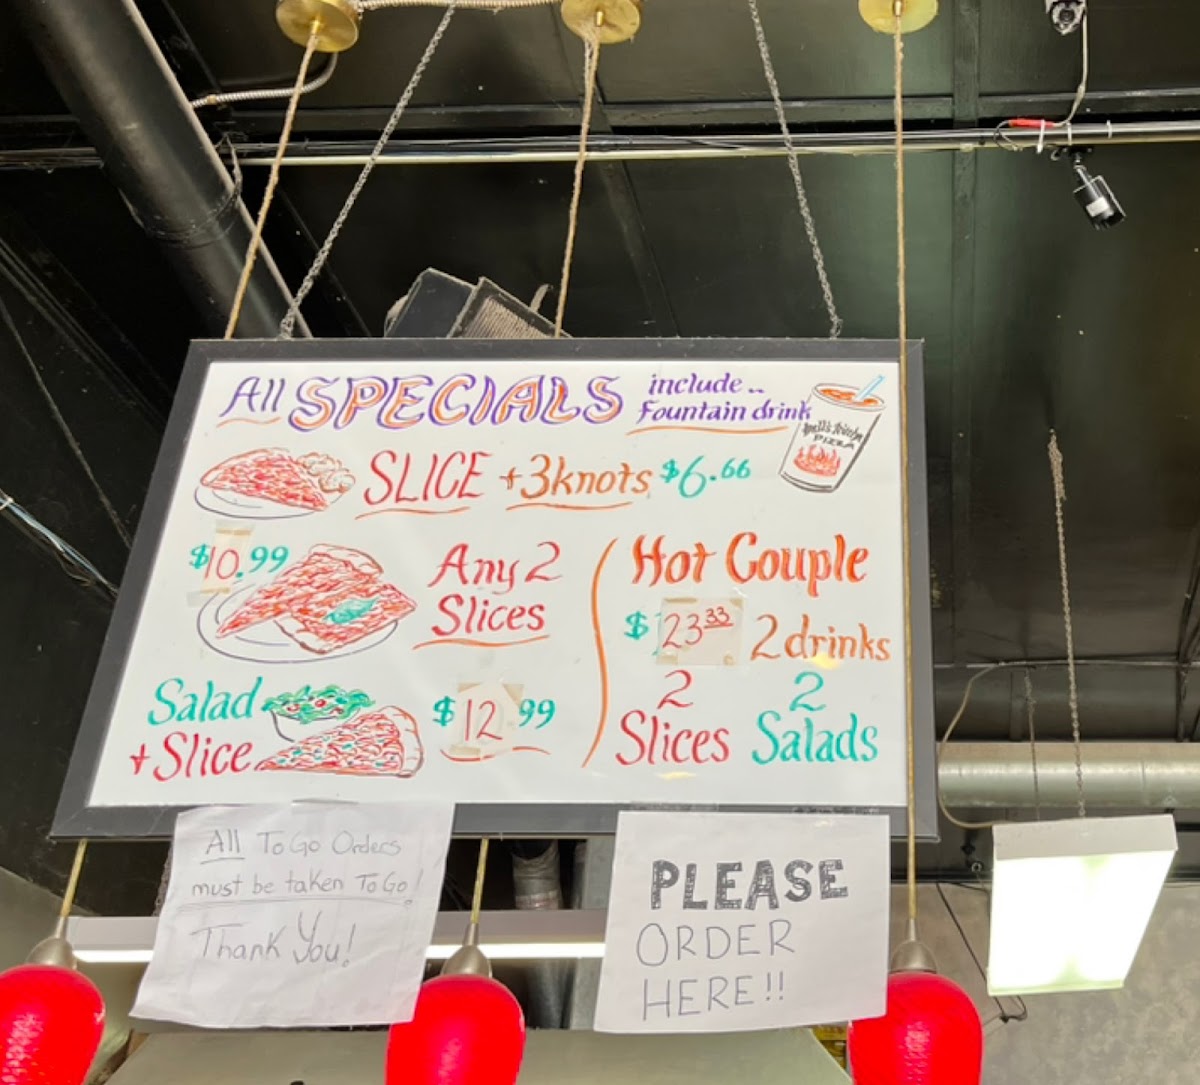 All SPECIALS include..
Fountain drink
PIZZA
SLICE +3knots $6.66
$10.99
Any 2
Slices
Salad
+ Slice
$12.99
Hot Couple
$23.33 2 drinks
2 2
Slices Salads
All To Go Orders
must be taken To Go!
Thank You!
PLEASE
ORDER
HERE!!